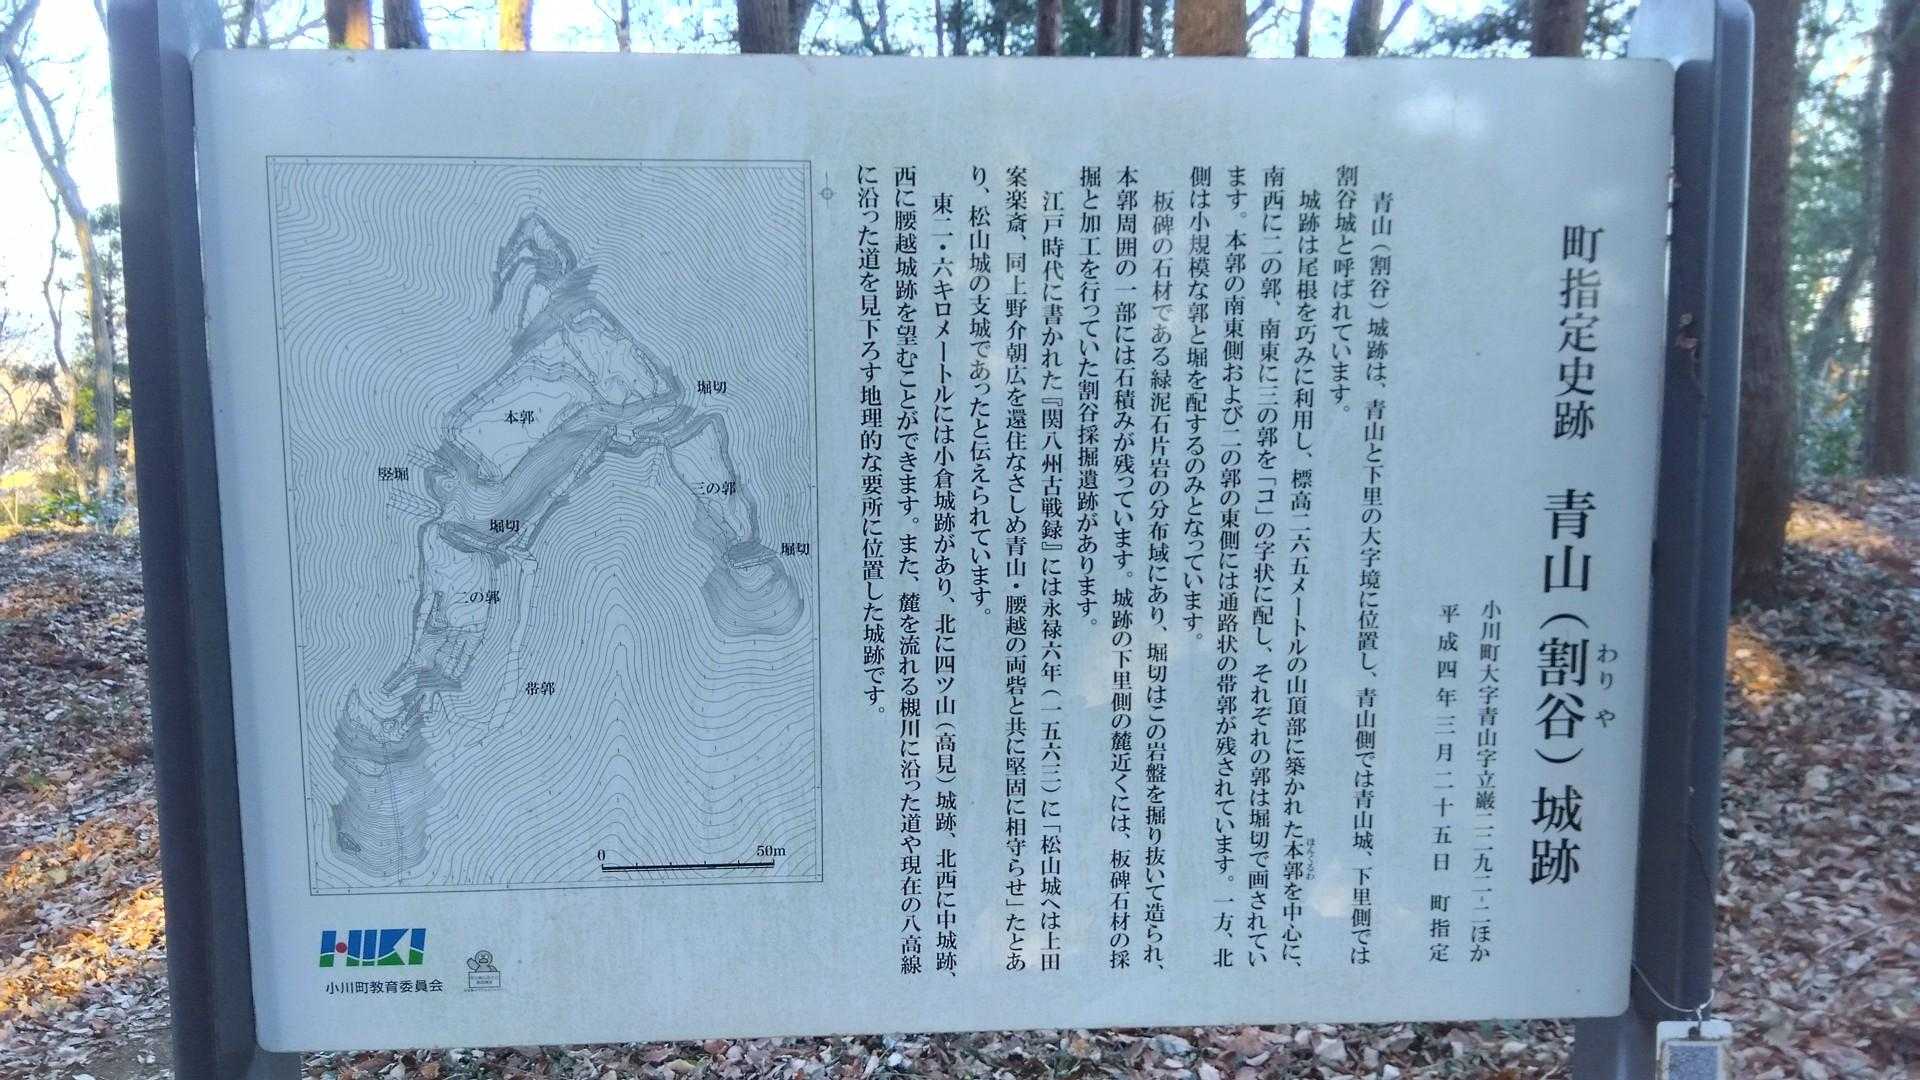 町指定史跡　青山（割谷）城跡
わりや
小川町大字青山字立巌二二九二-二ほか
平成四年三月二十五日　町指定
青山（割谷）城跡は、青山と下里の大字境に位置し、青山側では青山城、下里側では
割谷城と呼ばれています。
城跡は尾根を巧みに利用し、標高二六五メートルの山頂部に築かれた本郭を中心に、
ほんくるわ
南西に二の郭、南東に三の郭を「コ」の字状に配し、それぞれの郭は堀切で画されてい
ます。本郭の南東側および二の郭の東側には通路状の帯郭が残されています。一方、北
側は小規模な郭と堀を配するのみとなっています。
板碑の石材である緑泥石片岩の分布域にあり、堀切はこの岩盤を掘り抜いて造られ、
本郭周囲の一部には石積みが残っています。城跡の下里側の麓近くには、板碑石材の採
掘と加工を行っていた割谷採掘遺跡があります。
江戸時代に書かれた『関八州古戦録』には永禄六年（一五六三）に「松山城へは上田
案楽斎、同上野介朝広を還住なさしめ青山・腰越の両砦と共に堅固に相守らせ」たとあ
り、松山城の支城であったと伝えられています。
東二・六キロメートルには小倉城跡があり、北に四ツ山（高見）城跡、北西に中城跡、
西に腰越城跡を望むことができます。また、麓を流れる槻川に沿った道や現在の八高線
に沿った道を見下ろす地理的な要所に位置した城跡です。
堀切
本郭
竪堀
三の郭
堀切
堀切
二の郭
帯郭
0 50m
HIKI
小川町教育委員会